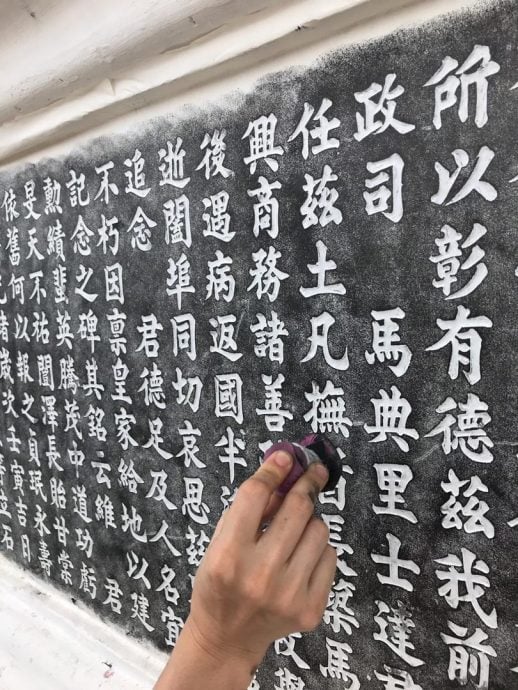 所以彰有德茲我前
政司 馬典里士達君
任茲土凡撫長築馬
興商務諸善
後遇病返國半
逝闔埠同切哀思茲
追念 君德足及人名宜
不朽因稟皇家給地以建
記念之碑其銘云維 君
勳績蜚英騰茂中道功虧
旻天不祐闓澤長貽甘棠
依舊何以報之貞珉永壽
緒歲次壬寅吉日立石